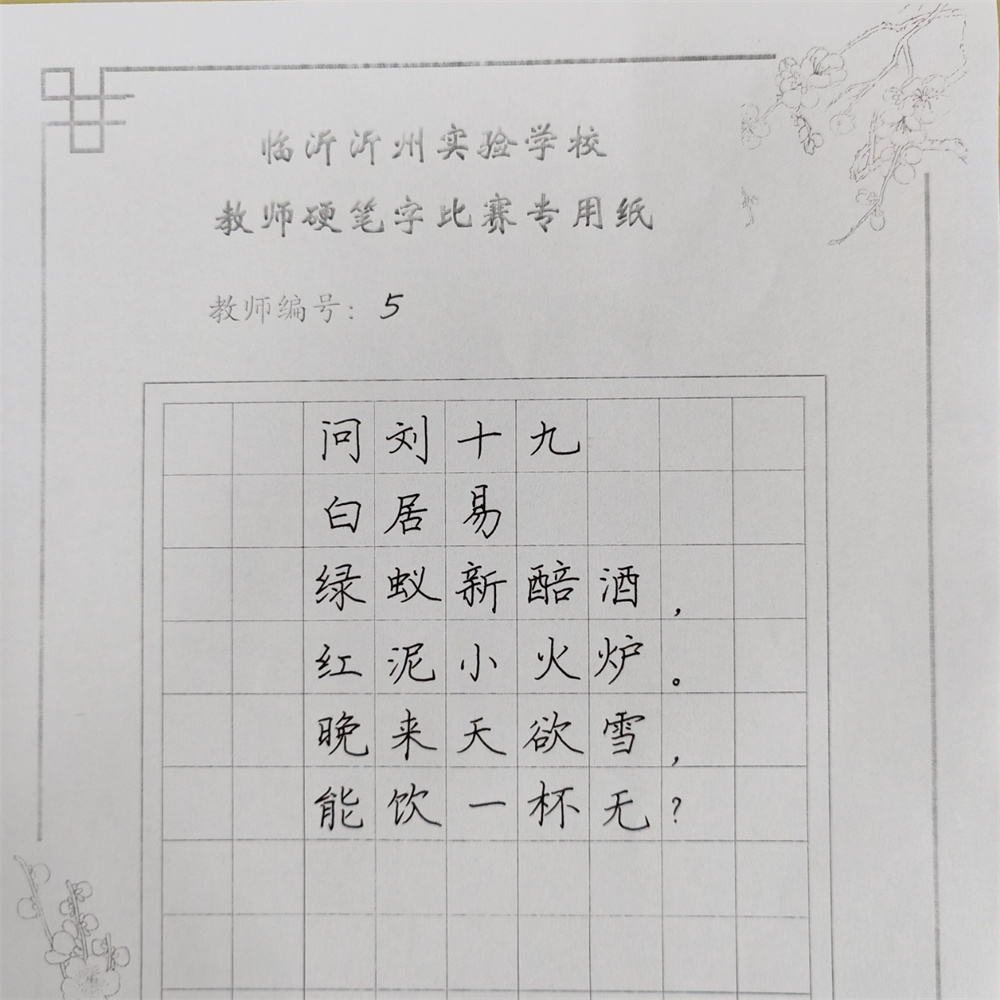 临沂沂州实验学校
教师硬笔字比赛专用纸
教师编号：5
问刘十九
白居易
绿蚁新醅酒，
红泥小火炉。
晚来天欲雪，
能饮一杯无？